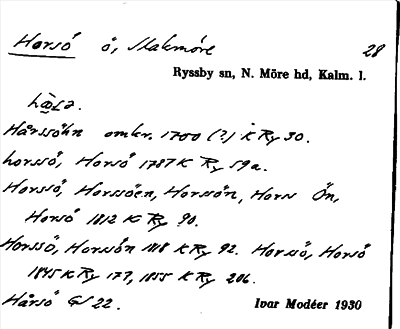 Horsö ö, Slakmöre 28
Ryssby sn, N. Möre hd, Kalm. l.
Hårssöhn omkr. 1700 (?) K Ry 30.
horssö, Horsö 1787 K Ry 59a.
Horssö, Horssöen, Horssön, Hors Ön,
Horsö 1812 K Ry 90.
Horssö, Horssön 1818 K Ry 92. Horssö, Horsö
1845 K Ry 177, 1855 K Ry 206.
Hårsö GS 22. Ivar Modéer 1930